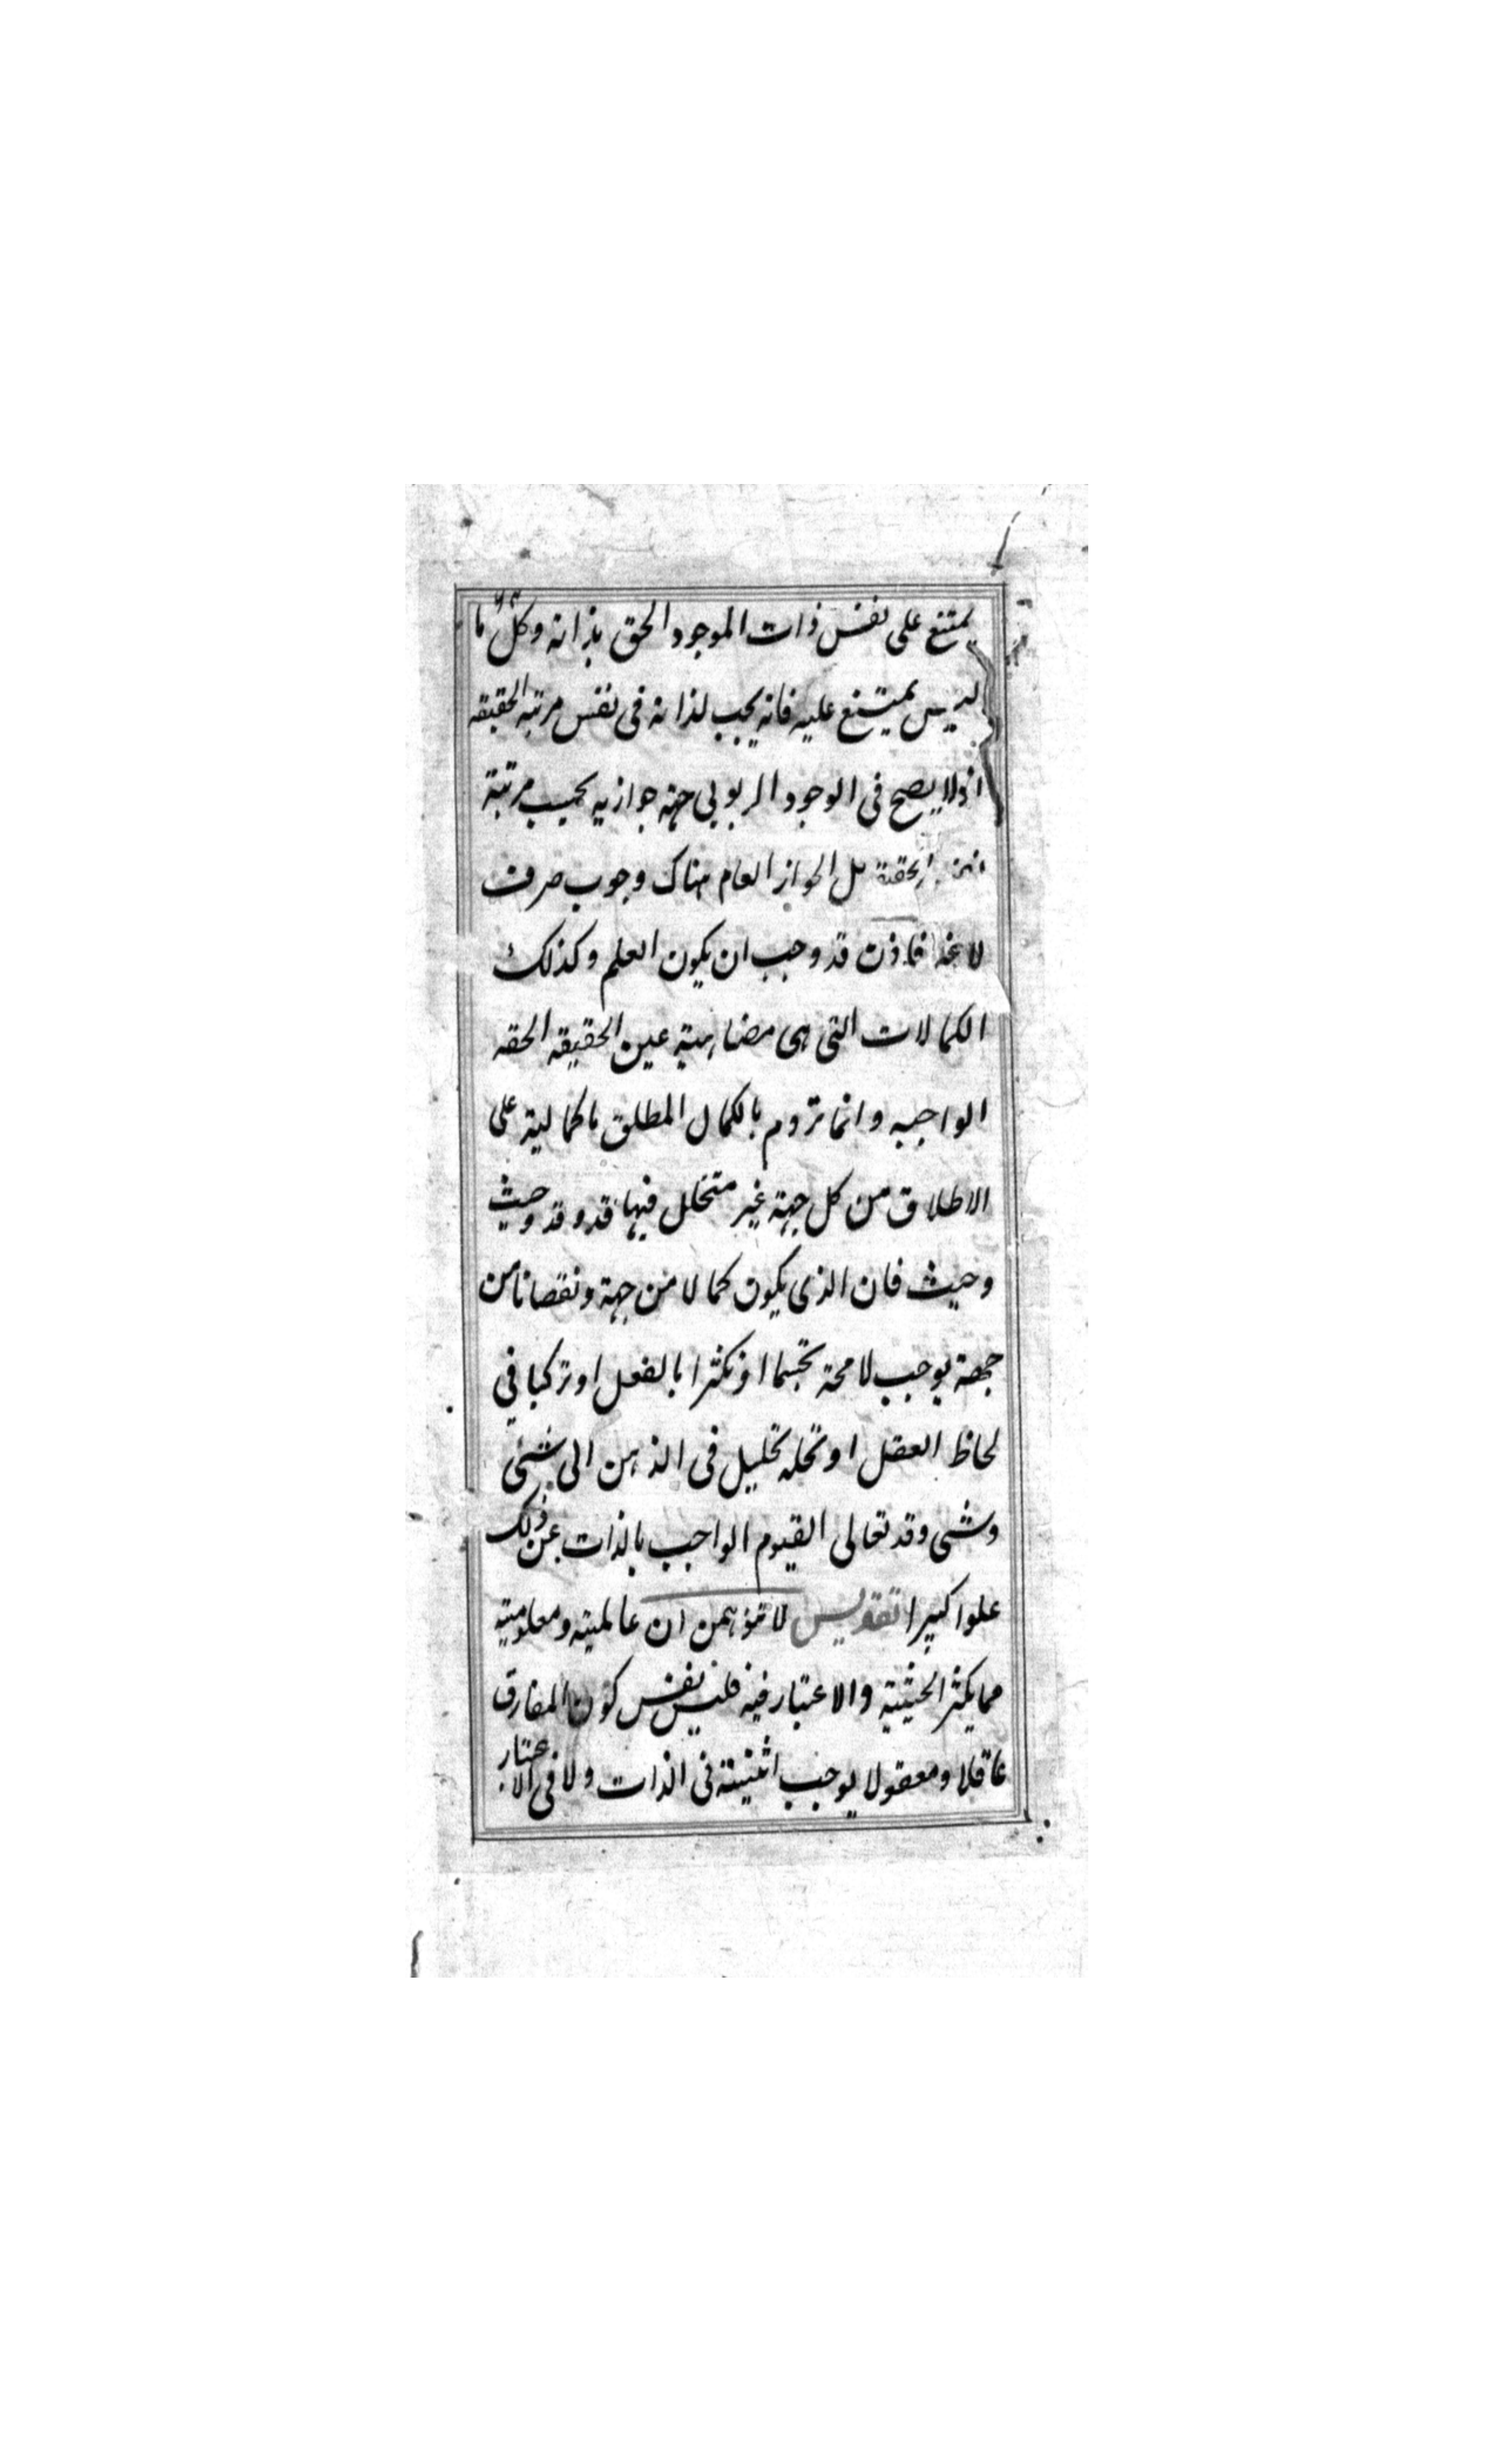 يمتنع على نفس ذات الموجود الحق بذاته وكل ما
ليس يمتنع عليه فانه يجب لذاته فى نفس مرتبه الحقيقه
اذ لا يصح فى الوجود الربوبى جهة جوازيه بحسب مرتبة
الحقيقة بل الجواز العام هناك وجوب صرف
لا غير فاذن قد وجب ان يكون العلم وكذلك
الكمالات التى هى مضاهيته عين الحقيقه الحقه
الواجبه وانما نروم بالكمال المطلق ما كماليته على
الاطلاق من كل جهة غير متخلل فيها قد وقد وحيث
وحيث فان الذى يكون كمالا من جهة ونقصانا من
جهة يوجب لا محة تجسما او تكثرا بالفعل او تركبا في
لحاظ العقل او تحله تحليل فى الذهن الى شئ
وشى وقد تعالى القيوم الواجب بالذات عن ذلك
علوا كبيرا تقديس لا تتوهمن ان عالميته ومعلوميته
مما يكثر الحيثية والاعتبار فيه فليس نفس كون المفارق
عاقلا ومعقولا يوجب اثنينة فى الذات ولا فى الاعتبار